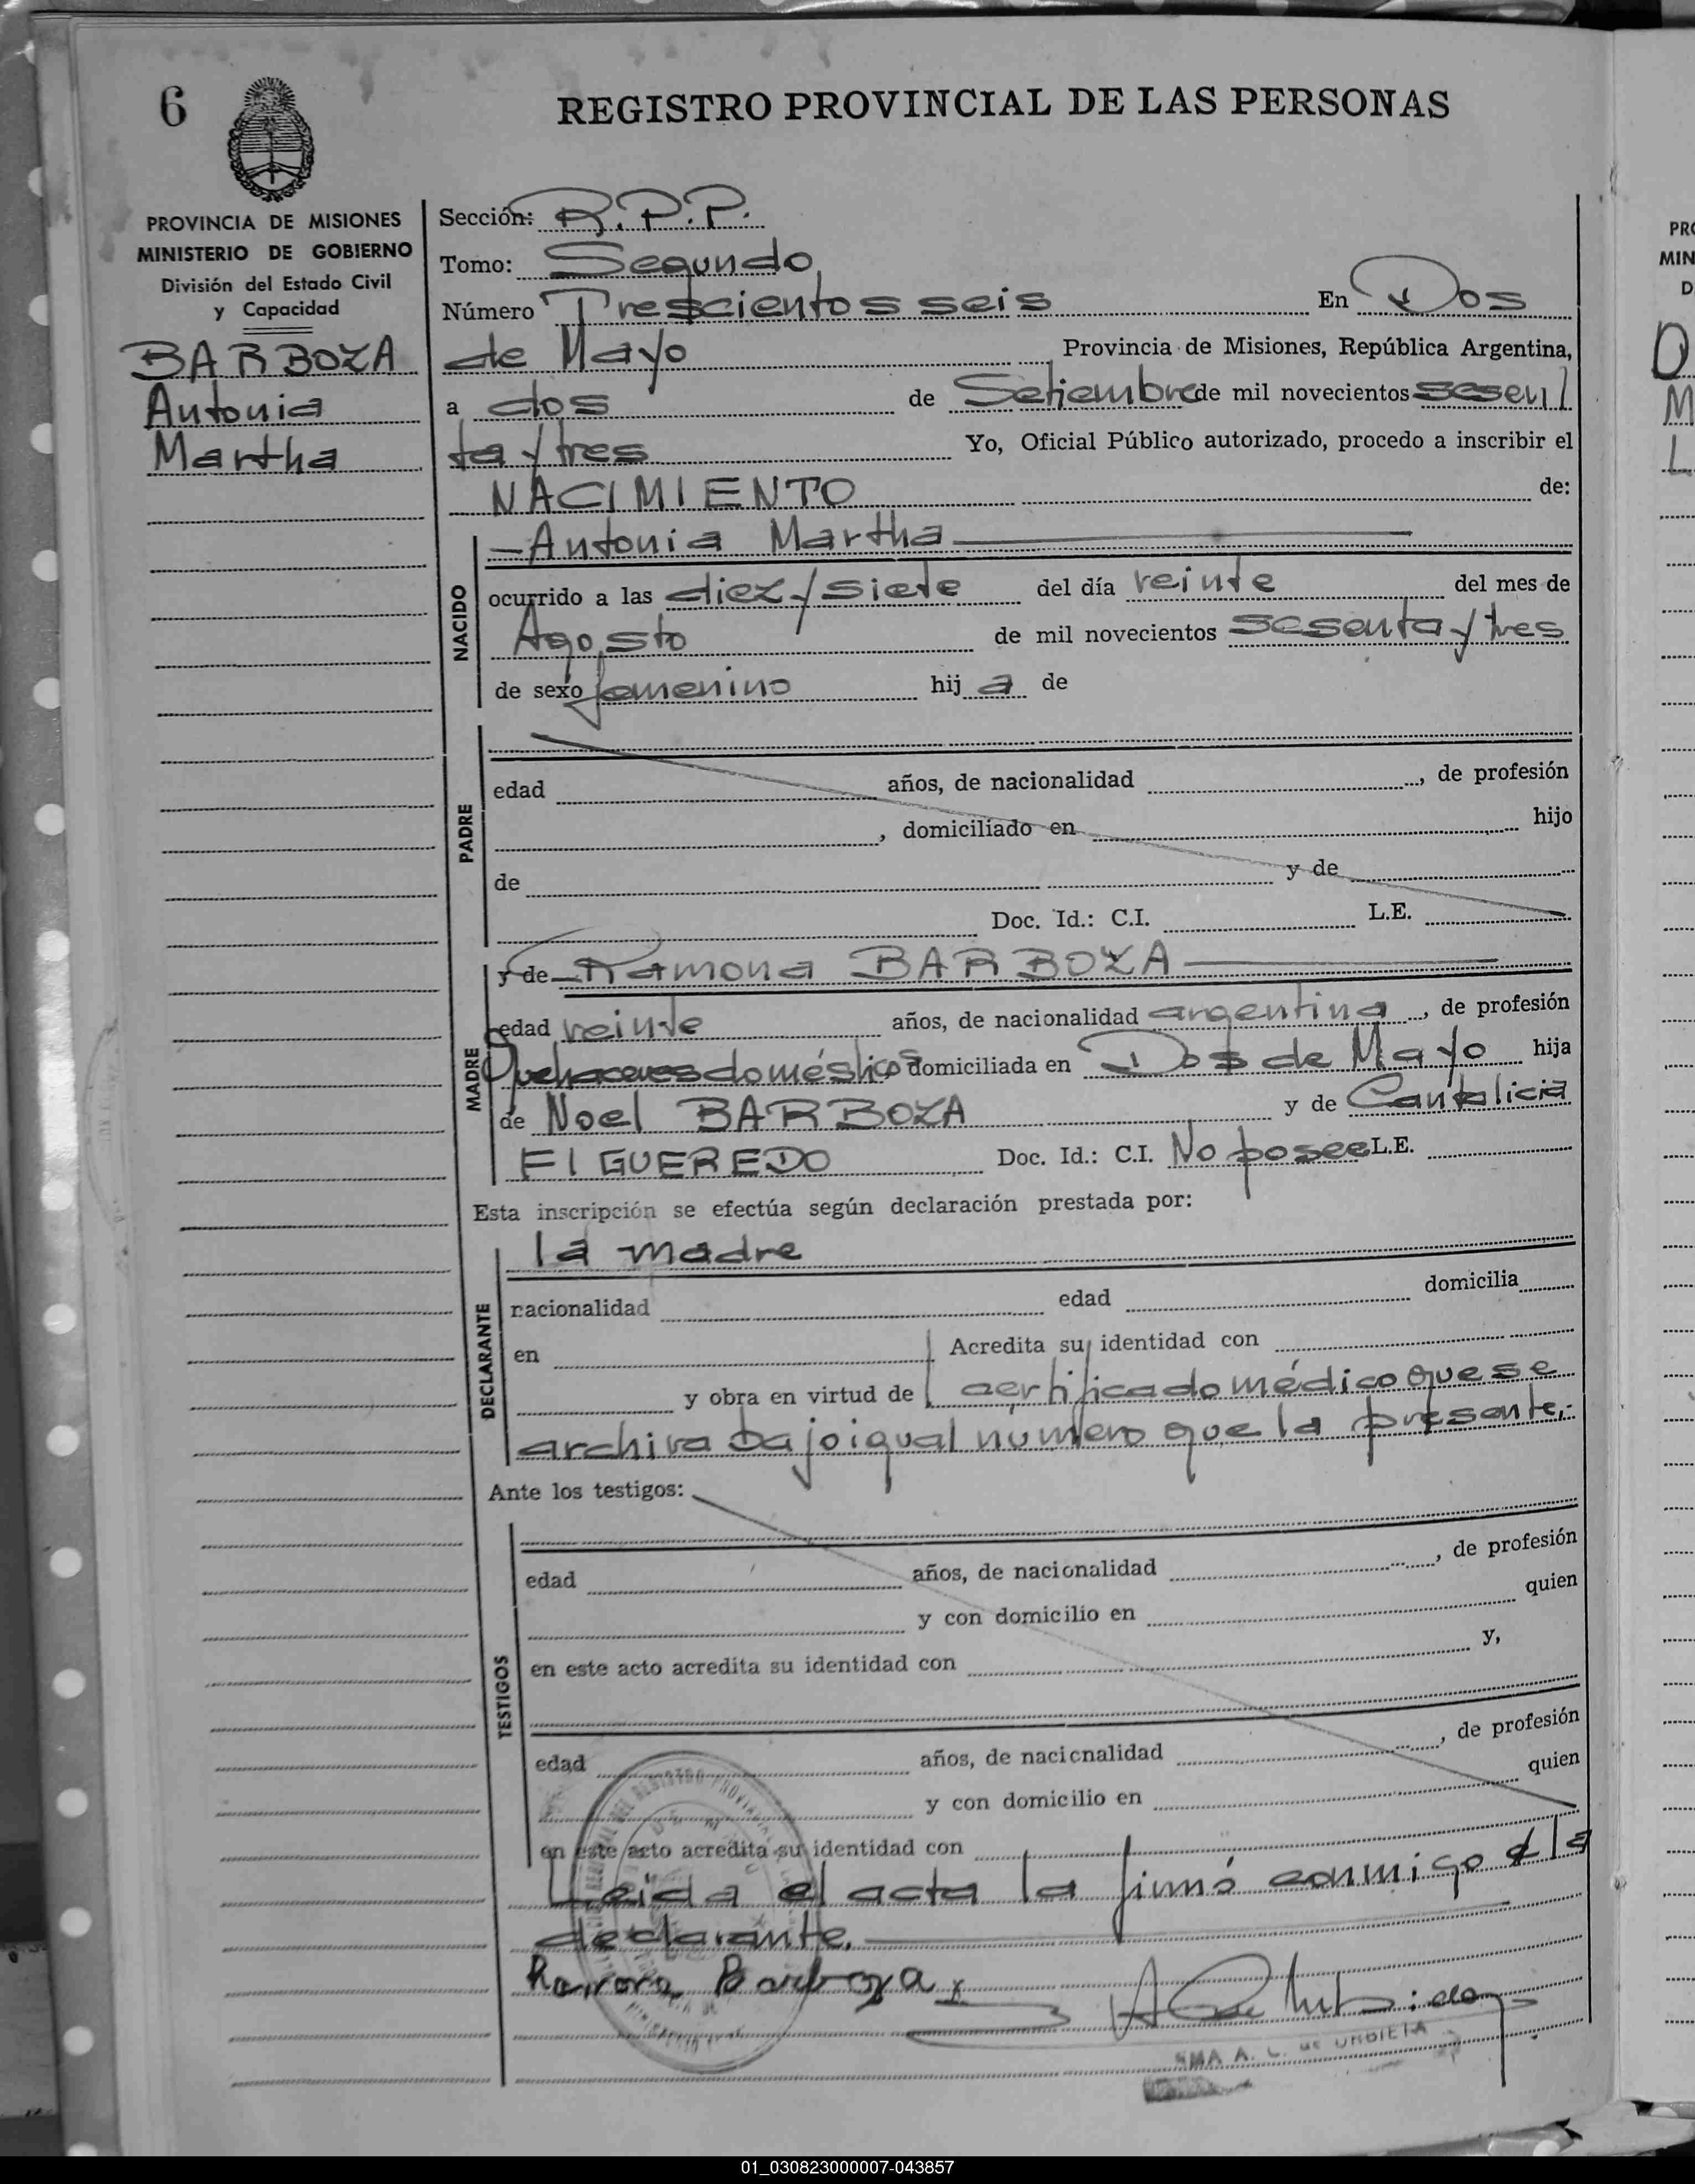 6
REGISTRO PROVINCIAL DE LAS PERSONAS
PROVINCIA DE MISIONES
MINISTERIO DE GOBIERNO
División del Estado Civil
y Capacidad
BARBOZA
Antonia
Martha
Sección: R.P.P.
Tomo: Segundo
Número Trescientos seis En Dos
de Mayo Provincia de Misiones, República Argentina,
a dos de Setiembre de mil novecientos sesen
ta y tres Yo, Oficial Público autorizado, procedo a inscribir el
NACIMIENTO de:
NACIDO
—Antonia Martha
ocurrido a las diez y siete del día veinte del mes de
Agosto de mil novecientos sesenta y tres
de sexo femenino hij a de
PADRE
edad años, de nacionalidad , de profesión
, domiciliado en hijo
de y de
Doc. Id.: C.I. L.E.
MADRE
y de Ramona BARBOZA
edad veinte años, de nacionalidad argentina, de profesión
Quehaceres domésticos domiciliada en Dos de Mayo hija
de Noel BARBOZA y de Cantalicia
FIGUEREDO Doc. Id.: C.I. No posee L.E.
Esta inscripción se efectúa según declaración prestada por:
DECLARANTE
la madre
nacionalidad edad domicilia
en Acredita su identidad con
y obra en virtud de certificado médico que se
archiva bajo igual número que la presente.-
Ante los testigos:
TESTIGOS
edad años, de nacionalidad , de profesión
y con domicilio en quien
en este acto acredita su identidad con y,
edad años, de nacicnalidad , de profesión
y con domicilio en quien
en este acto acredita su identidad con
Leida el acta la firmó conmigo la
declarante.
Ramona Barboza
A. C. de URBIETA
01_030823000007-043857